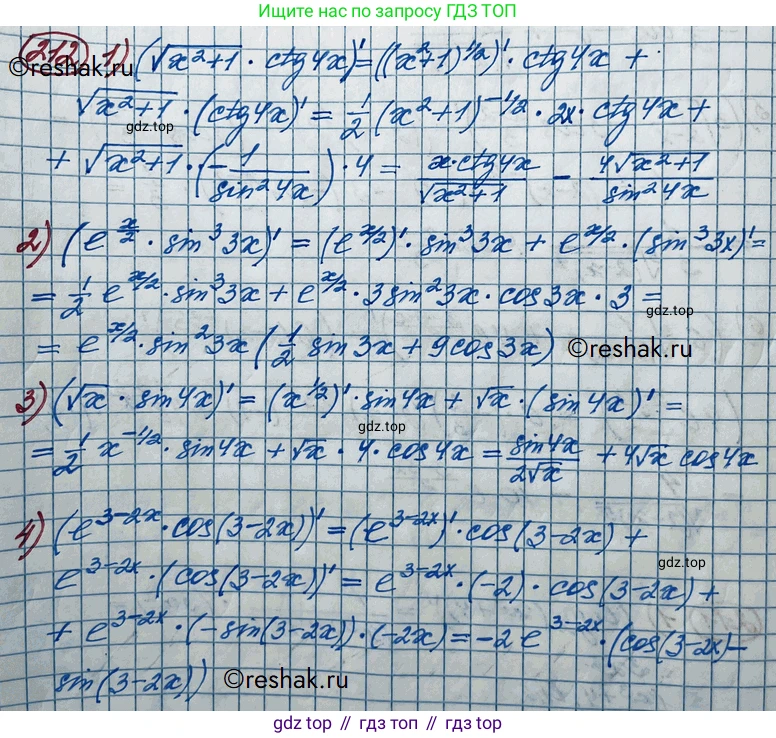 Ищите нас по запросу ГДЗ ТОП
212 1) (√(x²+1) · ctg4x)' = ((x²+1)^1/2)' · ctg4x +
©reshak.ru
√(x²+1) · (ctg4x)' = 1/2 (x²+1)^-1/2 · 2x · ctg4x +
gdz.top
+ √(x²+1) · (-1/sin²4x) · 4 = x·ctg4x/√(x²+1) - 4√(x²+1)/sin²4x
2) (e^x/2 · sin³3x)' = (e^x/2)' · sin³3x + e^x/2 · (sin³3x)' =
= 1/2 e^x/2 · sin³3x + e^x/2 · 3sin²3x · cos3x · 3 =
gdz.top
= e^x/2 · sin²3x (1/2 sin3x + 9cos3x) ©reshak.ru
3) (√x · sin4x)' = (x^1/2)' · sin4x + √x · (sin4x)' =
gdz.top
= 1/2 x^-1/2 · sin4x + √x · 4 · cos4x = sin4x/2√x + 4√x cos4x
4) (e^3-2x · cos(3-2x))' = (e^3-2x)' · cos(3-2x) +
gdz.top
e^3-2x · (cos(3-2x))' = e^3-2x · (-2) · cos(3-2x) +
+ e^3-2x · (-sin(3-2x)) · (-2x) = -2e^3-2x · (cos(3-2x) -
sin(3-2x)) ©reshak.ru
gdz.top // гдз топ // gdz.top